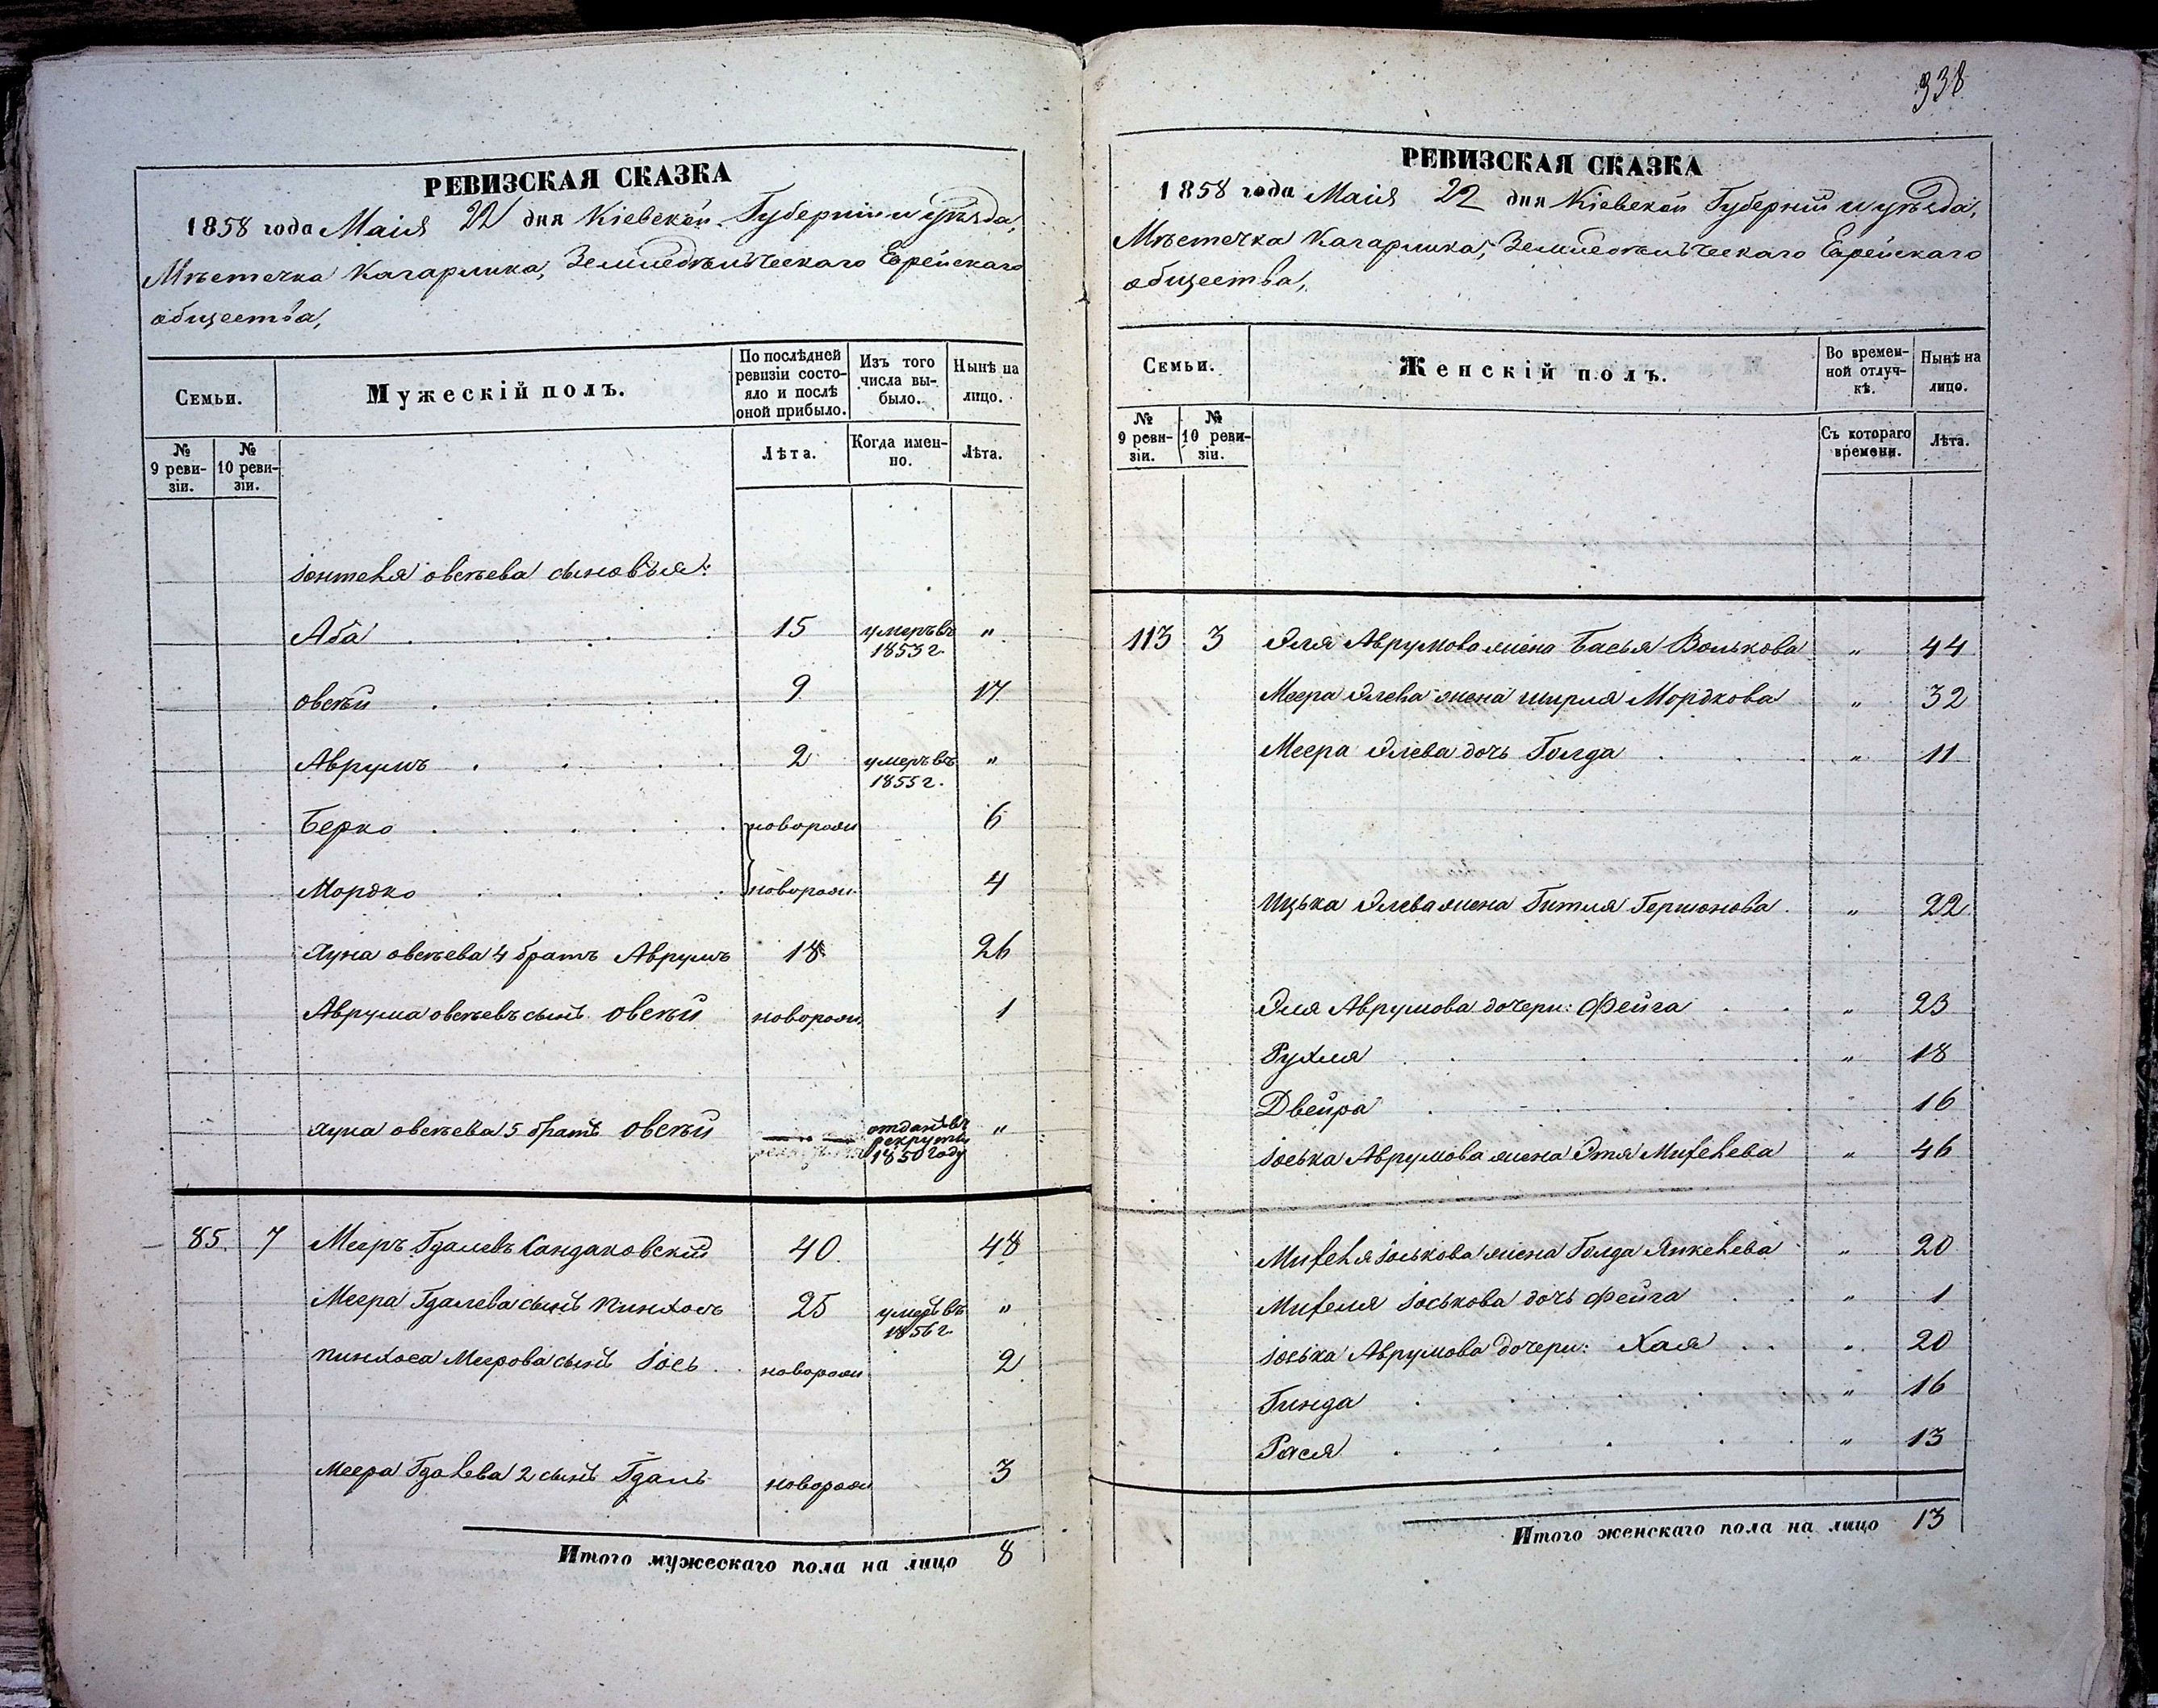 РЕВИЗСКАЯ СКАЗКА
1858 года Маія 22 дня Кіевской Губерніи и уѣзда,
Мѣстечка Кагарлика, Земледѣльческаго Еврейскаго
общества,
Семьи.
Мужескій полъ.
По послѣдней ревизіи состояло и послѣ оной прибыло.
Изъ того числа выбыло.
Нынѣ на лицо.
№ 9 ревизіи.
№ 10 ревизіи.
Лѣта.
Когда именно.
Лѣта.
Іонтеля Овсѣева сыновья:
Аба 15 умеръ въ 1853 г. "
Овсѣй 9 17
Аврумъ 2 умеръ въ 1855 г. "
Берко новорож 6
Мордко новорож. 4
Хуна Овсѣева 4 братъ Аврумъ 18 26
Аврума Овсѣевъ сынъ Овсѣй новорож. 1
Хуна Овсѣева 5 братъ Овсѣй отданъ въ рекруты 1850 году "
85. 7 Меръ Гдалевъ Сандаковскій 40 48
Меера Гдалева сынъ Пинхосъ 25 умеръ въ 1856 г. "
Пинхоса Меерова сынъ Іось новорож 2
Меера Гдалева 2 сынъ Гдаль новорож 3
Итого мужескаго пола на лицо 8
338
РЕВИЗСКАЯ СКАЗКА
1858 года Маія 22 дня Кіевской Губерніи и уѣзда,
Мѣстечка Кагарлика, Земледѣльческаго Еврейскаго
общества,
Семьи.
Женскій полъ.
Во временной отлучкѣ.
Нынѣ на лицо.
№ 9 ревизіи.
№ 10 ревизіи.
Съ котораго времени.
Лѣта.
113 3 Эля Аврумова жена Басья Волькова " 44
Меера Элева жена Ширля Мордкова " 32
Меера Элева дочь Голда " 11
Ицька Элева жена Гитля Гершонова " 22
Эля Аврумова дочери: Фейга " 23
Рухля " 18
Двейра " 16
Іоська Аврумова жена Этя Михелева " 46
Михеля Іоськова жена Голда Янкелева " 20
Михеля Іоськова дочь Фейга " 1
Іоська Аврумова дочери: Хая " 20
Гинда " 16
Рася " 13
Итого женскаго пола на лицо 13